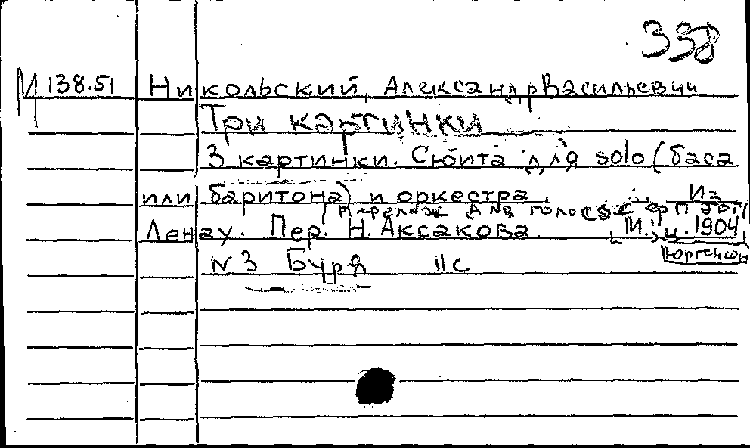 338
М 138.51 Никольский, Александр Васильевич
Три картинки
3 картинки. Сюита для solo (баса
или баритона) и оркестра. Из
Перелож для голоса с фп
Ленау. Пер. Н. Аксакова. М., ц. 1904
Юргенсон
N 3 Буря 11 с